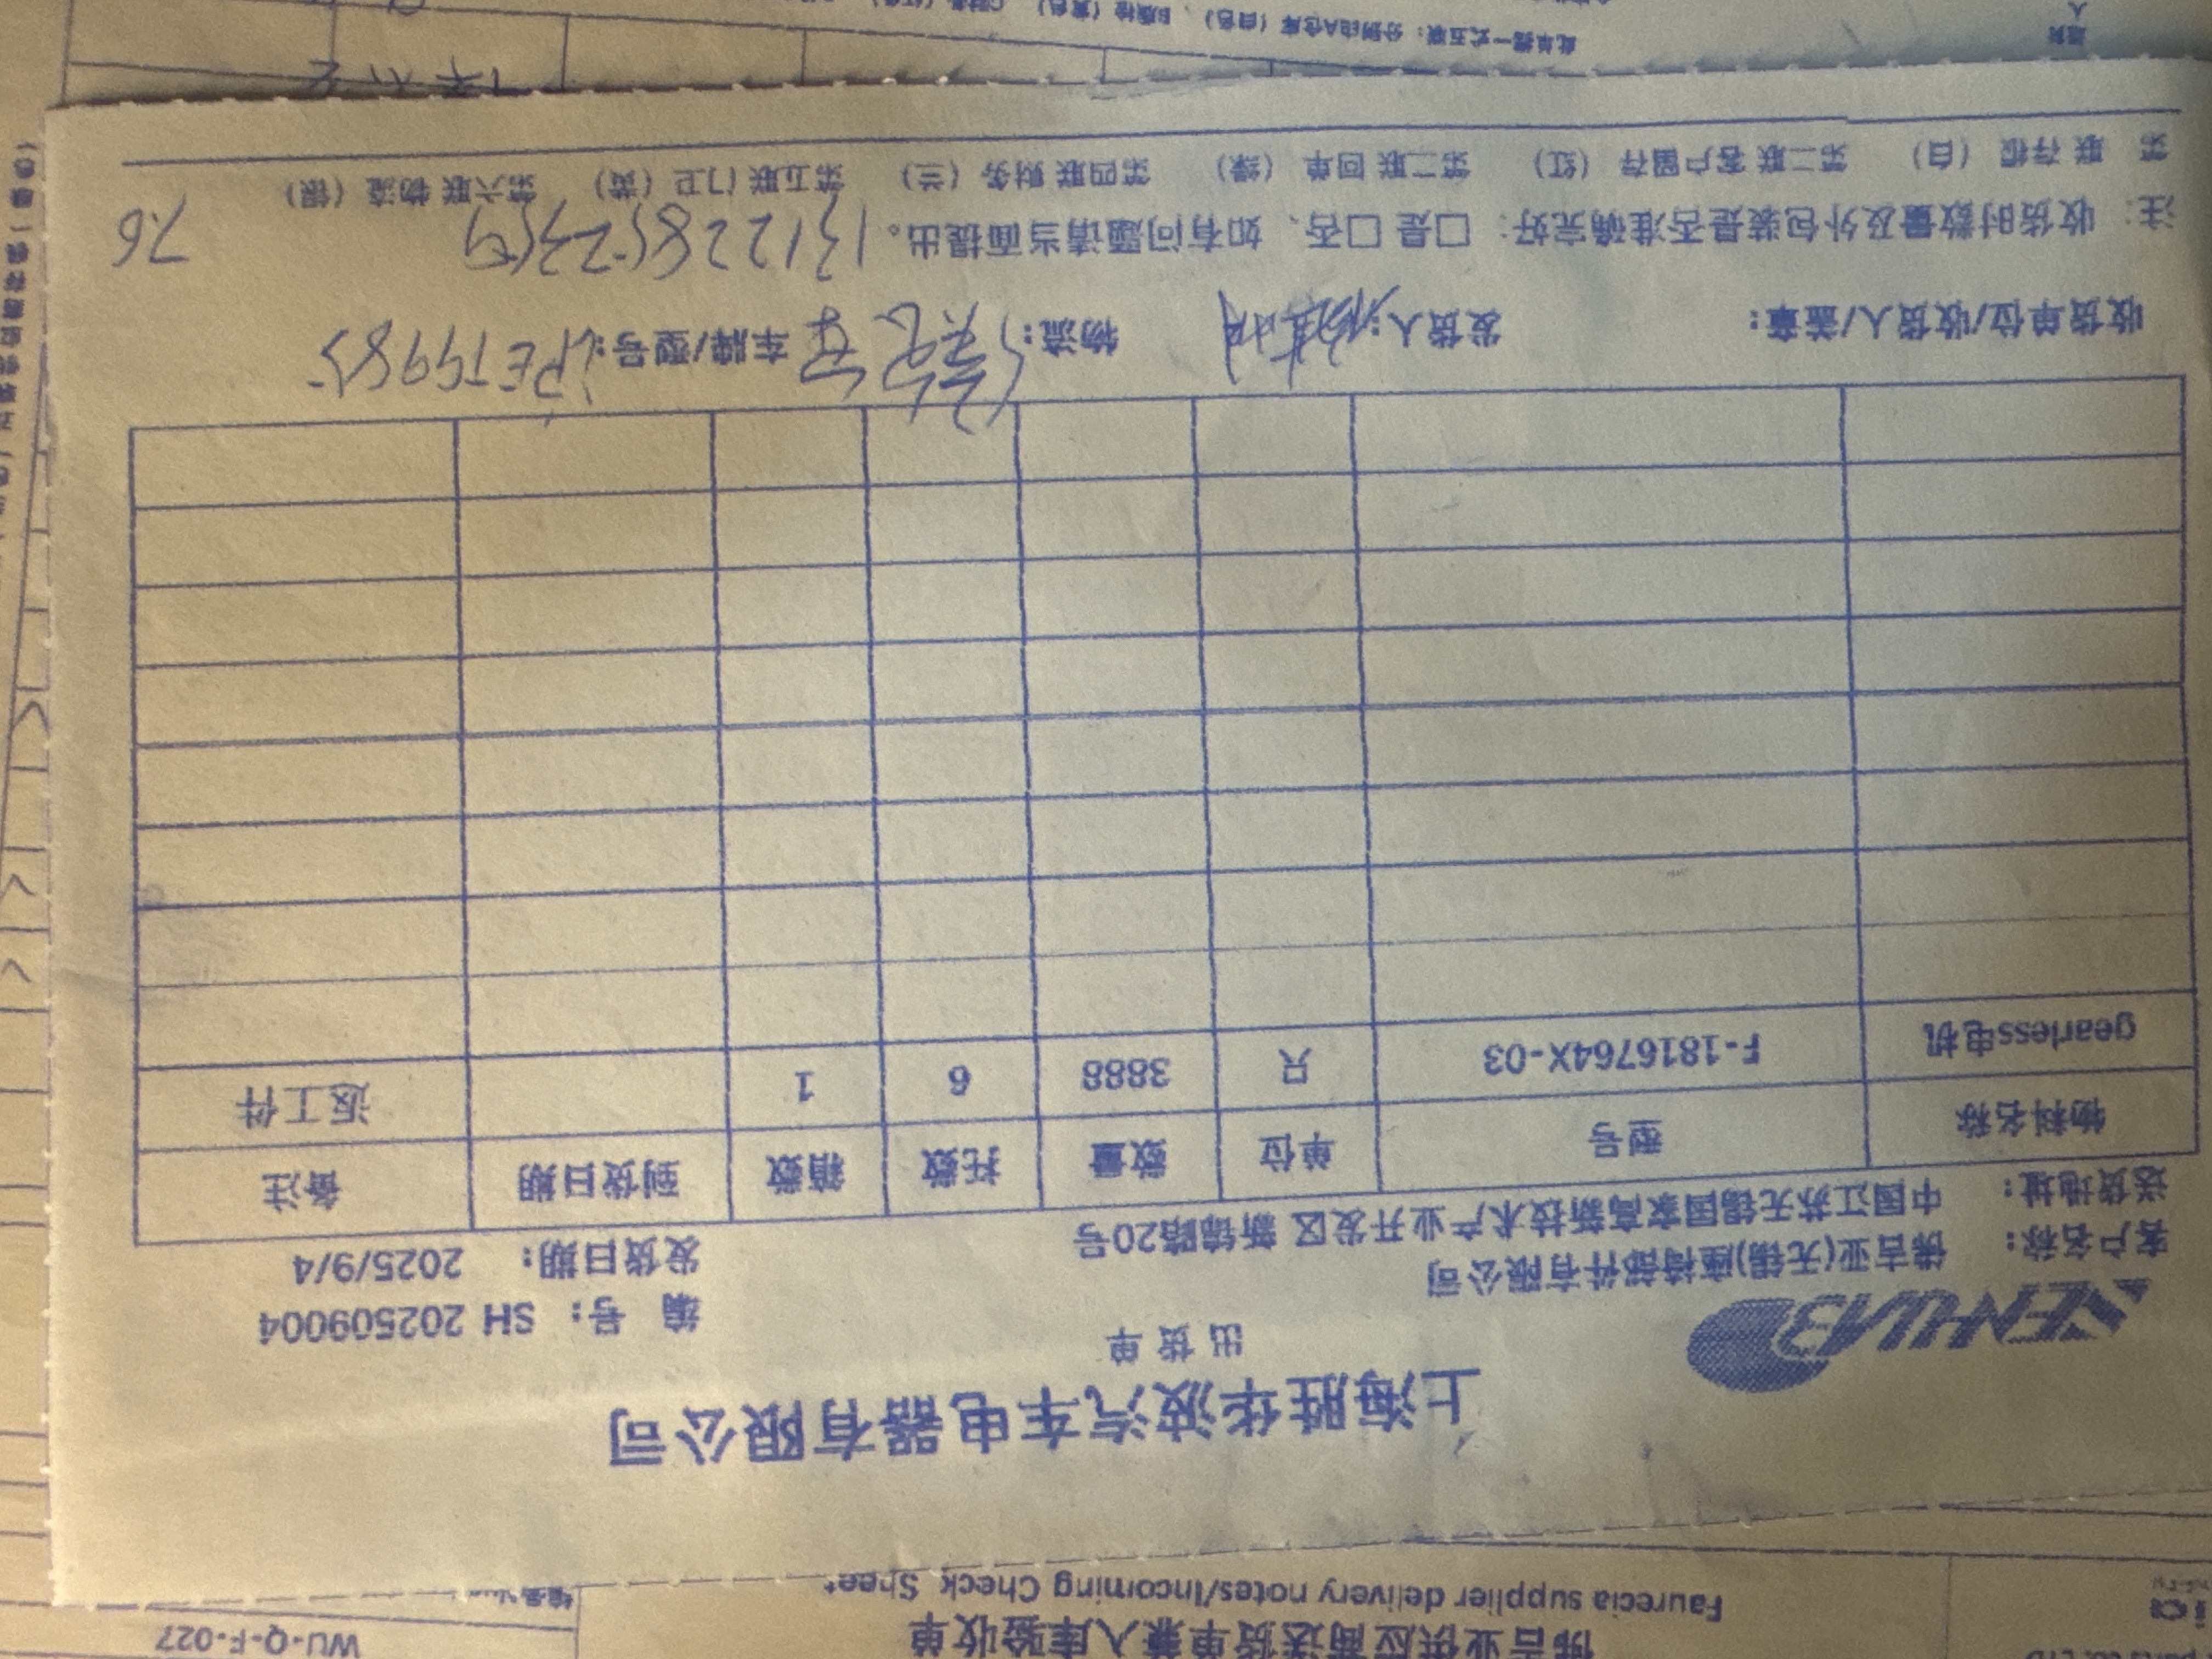 上海胜华波汽车电器有限公司
出 货 单
SENHUA3
编 号： SH 202509004
客户名称： 佛吉亚(无锡)座椅部件有限公司
发货日期： 2025/9/4
送货地址： 中国江苏无锡国家高新技术产业开发区 新锦路20号
物料名称 型号 单位 数量 托数 箱数 到货日期 备注
gearless电机 F-1816764X-03 只 3888 6 1 返工件
收货单位/收货人/盖章： 发货人： 物流： 车牌/型号：
注： 收货时数量及外包装是否准确完好： □是 □否、 如有问题请当面提出。
76
第 联 存根 （白） 第二联 客户留存 （红） 第二联 回单 （绿） 第四联 财务 （兰） 第五联 门卫 （黄） 第六联 物流 （银）
佛吉亚供应商送货单兼入库验收单
Faurecia supplier delivery notes/Incoming Check Sheet
WU-Q-F-027